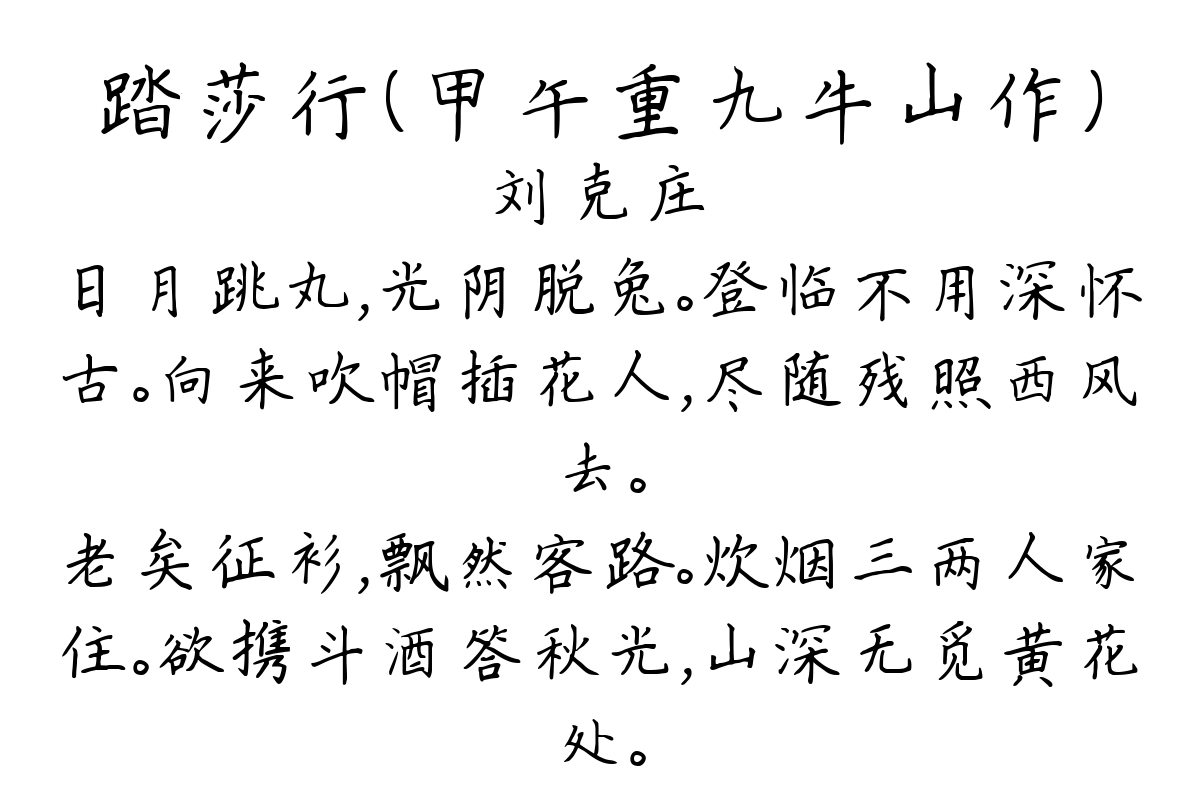 踏莎行(甲午重九牛山作)
刘克庄
日月跳丸,光阴脱兔。登临不用深怀
古。向来吹帽插花人,尽随残照西风
去。
老矣征衫,飘然客路。炊烟三两人家
住。欲携斗酒答秋光,山深无觅黄花
处。